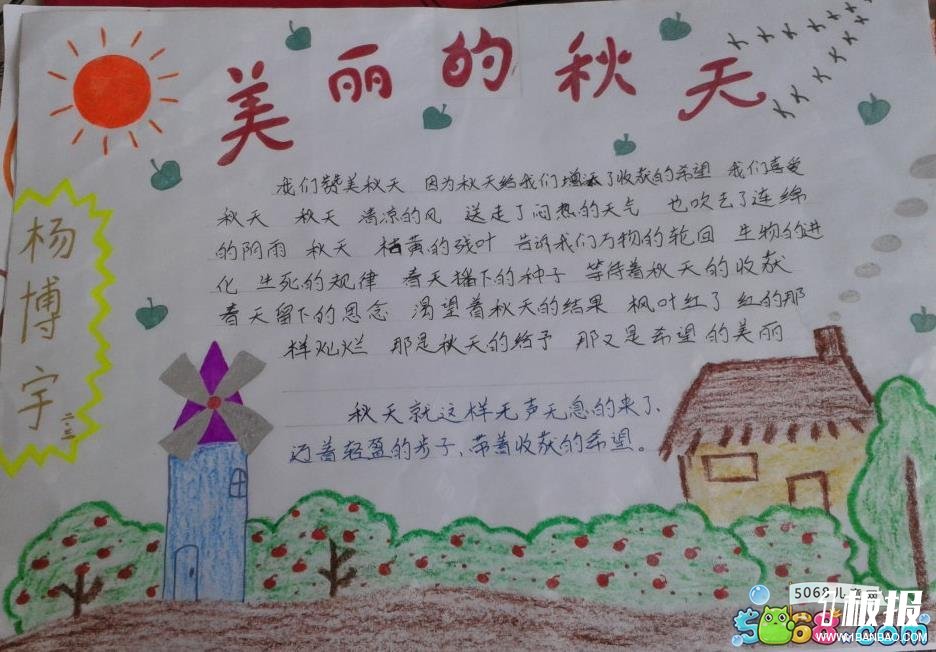 美丽的秋天
杨博宇
二·三
我们赞美秋天 因为秋天给我们增添了收获的希望 我们喜爱
秋天 秋天 清凉的风 送走了闷热的天气 也吹去了连绵
的阴雨 秋天 枯黄的残叶 告诉我们万物的轮回 生物的进
化 生死的规律 春天播下的种子 等待着秋天的收获
春天留下的思念 渴望着秋天的结果 枫叶红了 红的那
样灿烂 那是秋天的给予 那又是希望的美丽
秋天就这样无声无息的来了、
迈着轻盈的步子、带着收获的希望。
5068儿 网
板报
5068.com
WWW.1BANBAO.COM